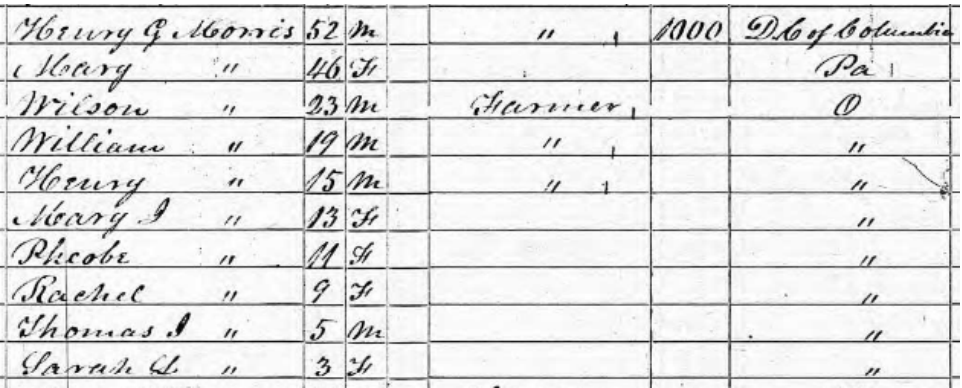 Henry G Morris 52 M " 1000 D.C of Columbia
Mary " 46 F Pa
Wilson " 23 M Farmer O
William " 19 M " "
Henry " 15 M " "
Mary J " 13 F "
Pheobe " 11 F "
Rachel " 9 F "
Thomas J " 5 M "
Sarah " 3 F "